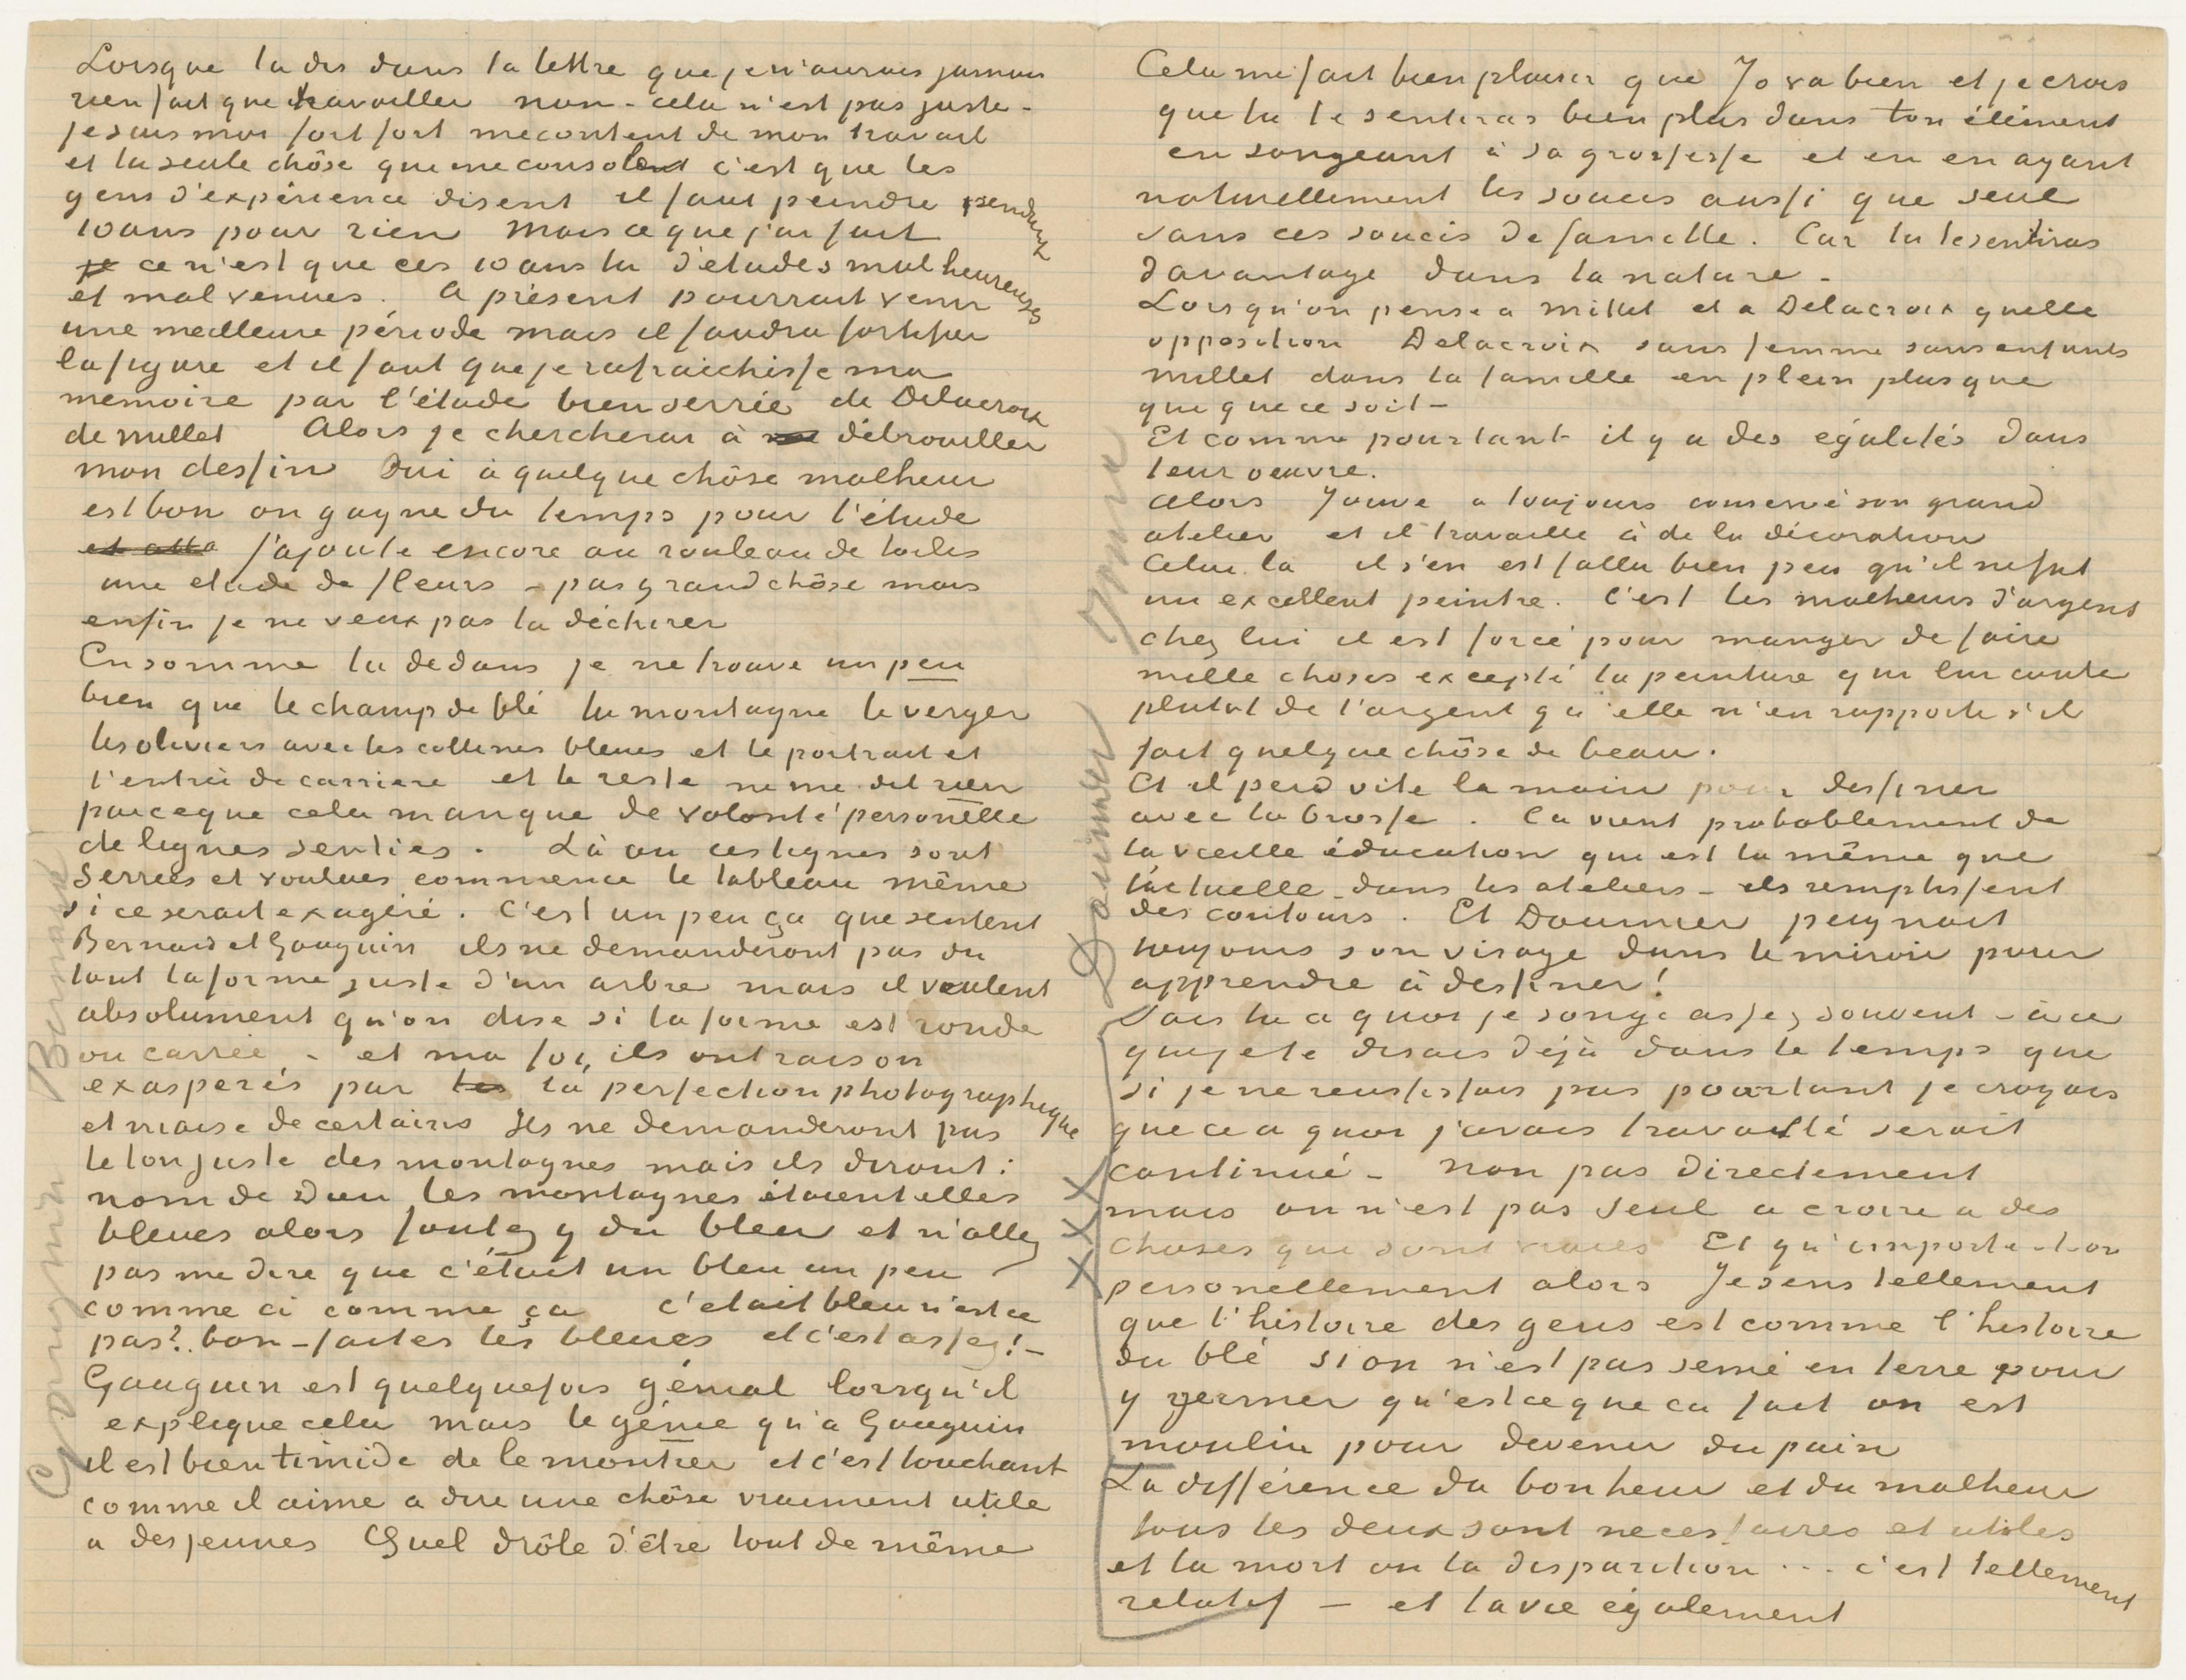 Lorsque tu dis dans ta lettre que je n'aurais jamais
rien fait que travailler non - cela n'est pas juste -
je suis moi fort fort mecontent de mon travail
et la seule chôse que me console c'est que les
gens d'expérience disent il faut peindre pendant
10 ans pour rien Mais ce que j'ai fait
je ce n'est que ces 10 ans là d'etudes malheureuses
et mal venues. A présent pourrait venir
une meilleure période mais il faudra fortifier
la figure et il faut que je rafraichisse ma
memoire par l'étude bien serrée de Delacroix
de Millet Alors je chercherai à débrouiller
mon dessin Oui à quelque chôse malheur
est bon on gagne du temps pour l'étude
j'ajoute encore au rouleau de toiles
une etude de fleurs - pas grand chôse mais
enfin je ne veux pas la déchirer
En somme la dedans je ne trouve un peu
bien que le champ de blé la montagne le verger
les oliviers avec les collines bleues et le portrait et
l'entrée de carriere et le reste ne me dit rien
parceque cela manque de volonté personelle
de lignes senties. Là ou ces lignes sont
serrées et voulues commence le tableau même
si ce serait exagéré. C'est un peu ça que sentent
Bernard et Gauguin ils ne demanderont pas du
tout la forme juste d'un arbre mais il veulent
absolument qu'on dise si la forme est ronde
ou carrée - et ma foi, ils ont raison
exasperés par les la perfection photographique
et niaise de certains Ils ne demanderont pas
le ton juste des montagnes mais ils diront:
nom de Dieu les montagnes étaient elles
bleues alors foutez y du bleu et n'allez
pas me dire que c'était un bleu un peu
comme ci comme ça c'etait bleu n'est ce
pas? bon - faites les bleues et c'est assez! -
Gauguin est quelquefois génial lorsqu'il
explique cela mais le génie qu'a Gauguin
il est bien timide de le montrer et c'est touchant
comme il aime a dire une chôse vraiment utile
a des jeunes Quel drôle d'être tout de même
Gauguin Bernard
Cela me fait bien plaisir que Jo va bien et je crois
que tu te sentiras bien plus dans ton élément
en songeant à sa grossesse et en en ayant
naturellement les soucis aussi que seul
sans ces soucis de famille. Car tu te sentiras
davantage dans la nature -
Lorsqu'on pense a Millet et a Delacroix quelle
opposition Delacroix sans femme sans enfants
Millet dans la famille en plein plus que
qui que ce soit -
Et comme pourtant il y a des égalités dans
leur oeuvre.
Alors Jouve a toujours conservé son grand
atelier et il travaille à de la décoration
Celui la il s'en est fallu bien peu qu'il ne fut
un excellent peintre. C'est les malheurs d'argent
chez lui il est forcé pour manger de faire
mille choses excepté la peinture qui lui coute
plutot de l'argent qu'elle n'en rapporte s'il
fait quelque chôse de beau.
Et il perd vite la main pour dessiner
avec la brosse. Ca vient probablement de
la vieille éducation qui est la même que
l'actuelle dans les ateliers - ils remplissent
des contours. Et Daumier peignait
toujours son visage dans le miroir pour
apprendre à dessiner!
Sais tu a quoi je songe assez souvent - à ce
que je te disais déjà dans le temps que
si je ne reussissais pas pourtant je croyais
que ce a quoi j'avais travaillé serait
continué - Non pas directement
mais on n'est pas seul a croire a des
choses qui sont vraies Et qu'importe-t-on
personellement alors Je sens tellement
que l'histoire des gens est comme l'histoire
du blé si on n'est pas semé en terre pour
y germer qu'est ce que ca fait on est
moulu pour devenir du pain
La différence du bonheur et du malheur
tous les deux sont necessaires et utiles
et la mort ou la disparition ... c'est tellement
relatif - et la vie également
Jouve
Daumier
X X X